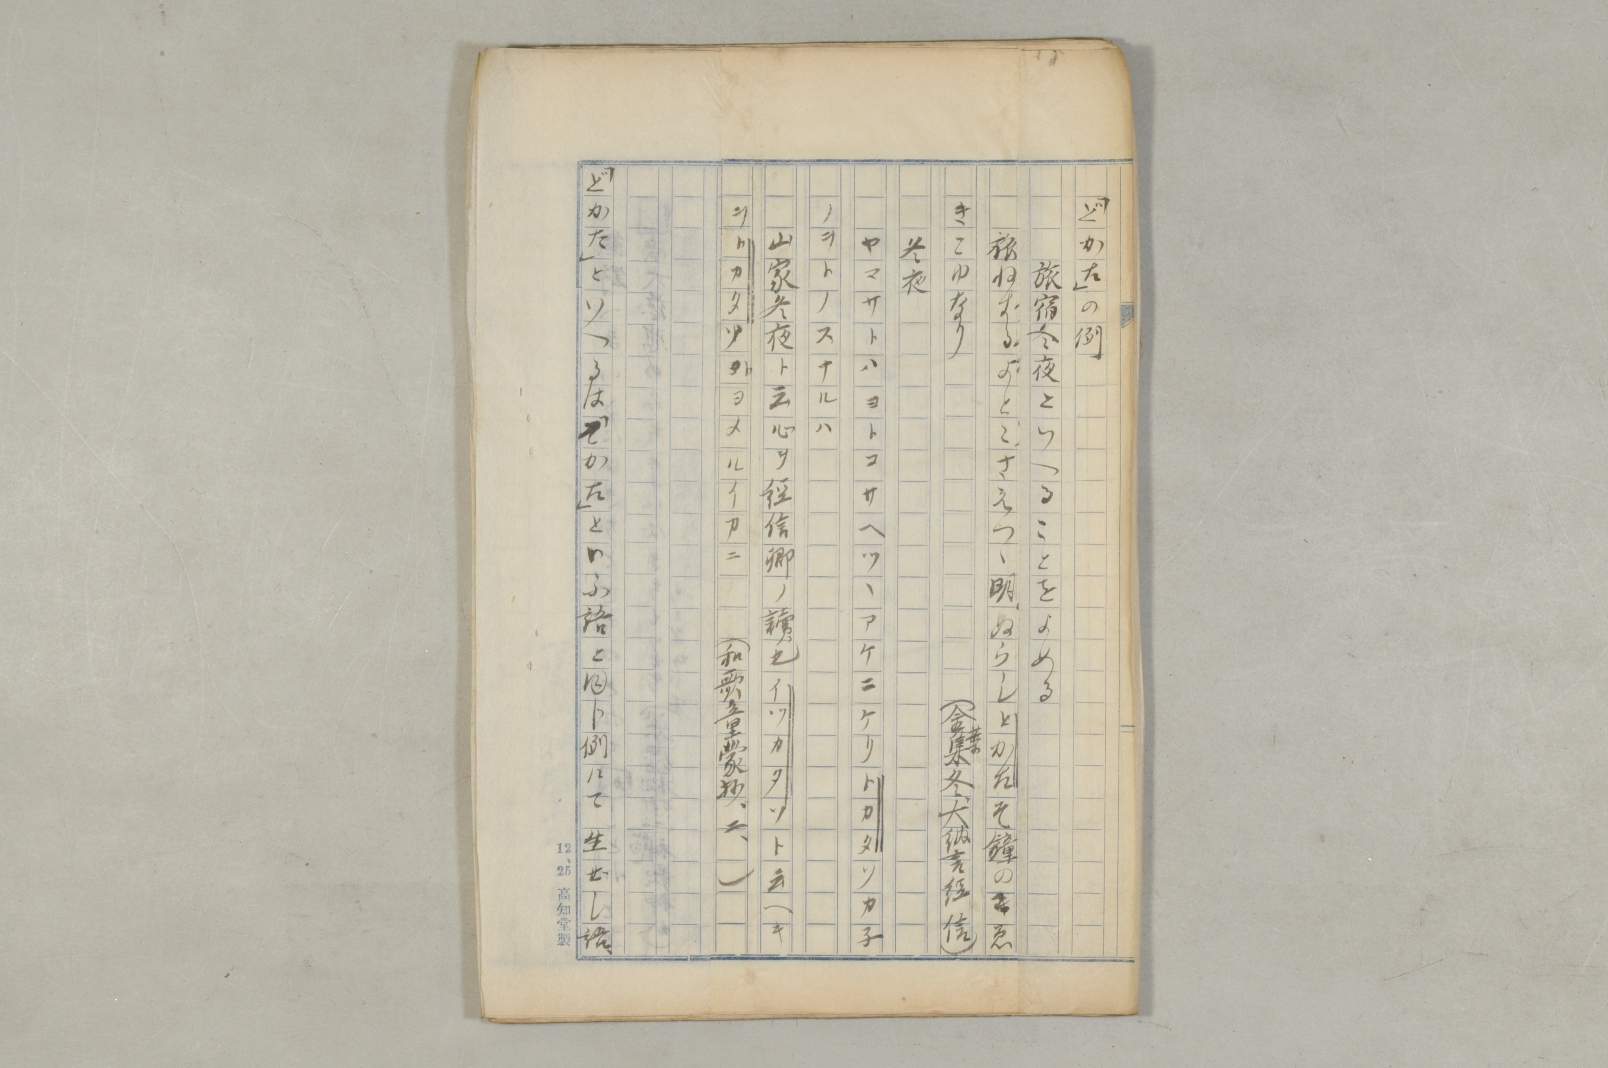 「どかた」の例
旅宿冬夜といへることをよめる
旅ねするよどこさえつゝ明ぬらしとかたそ鐘のこゑ
きこゆなり
(金葉集、冬、大納言経信)
冬夜
ヤマサトハヨトコサヘツヽアケニケリトカタソカ子
ノヲトノスナルハ
山家冬夜ト云心ヲ經信卿ノ讀也イツカタソト云ヘキ
ヲトカタソトヨメルイカニ
(和歌童蒙抄、二、)
「どかた」といへるは「そかた」といふ語と同ト例にて生せし語、
12、25 高知堂製